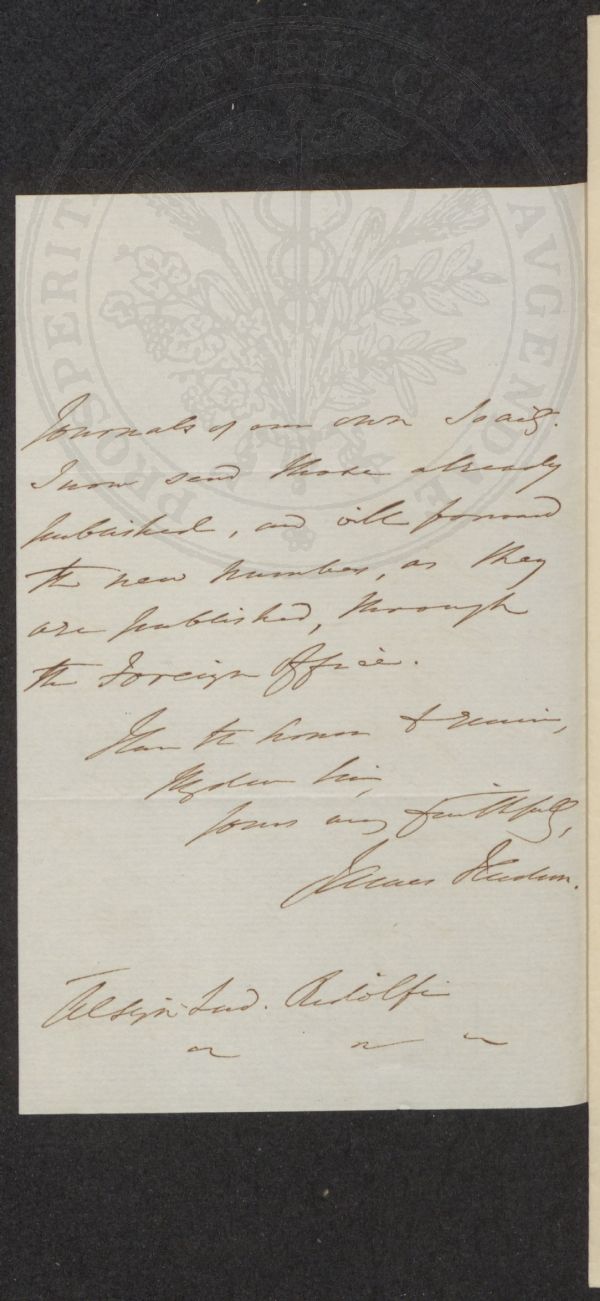 PROSPERITATI PUBLICAE AVGENDAE
Journals of our own Society.
I now send those already
published, and will forward
the new numbers, as they
are published, through
the Foreign Office.
I have the honor to remain,
My dear Sir,
yours very faithfully,
James Hudson.
Al Sigr Ridolfi